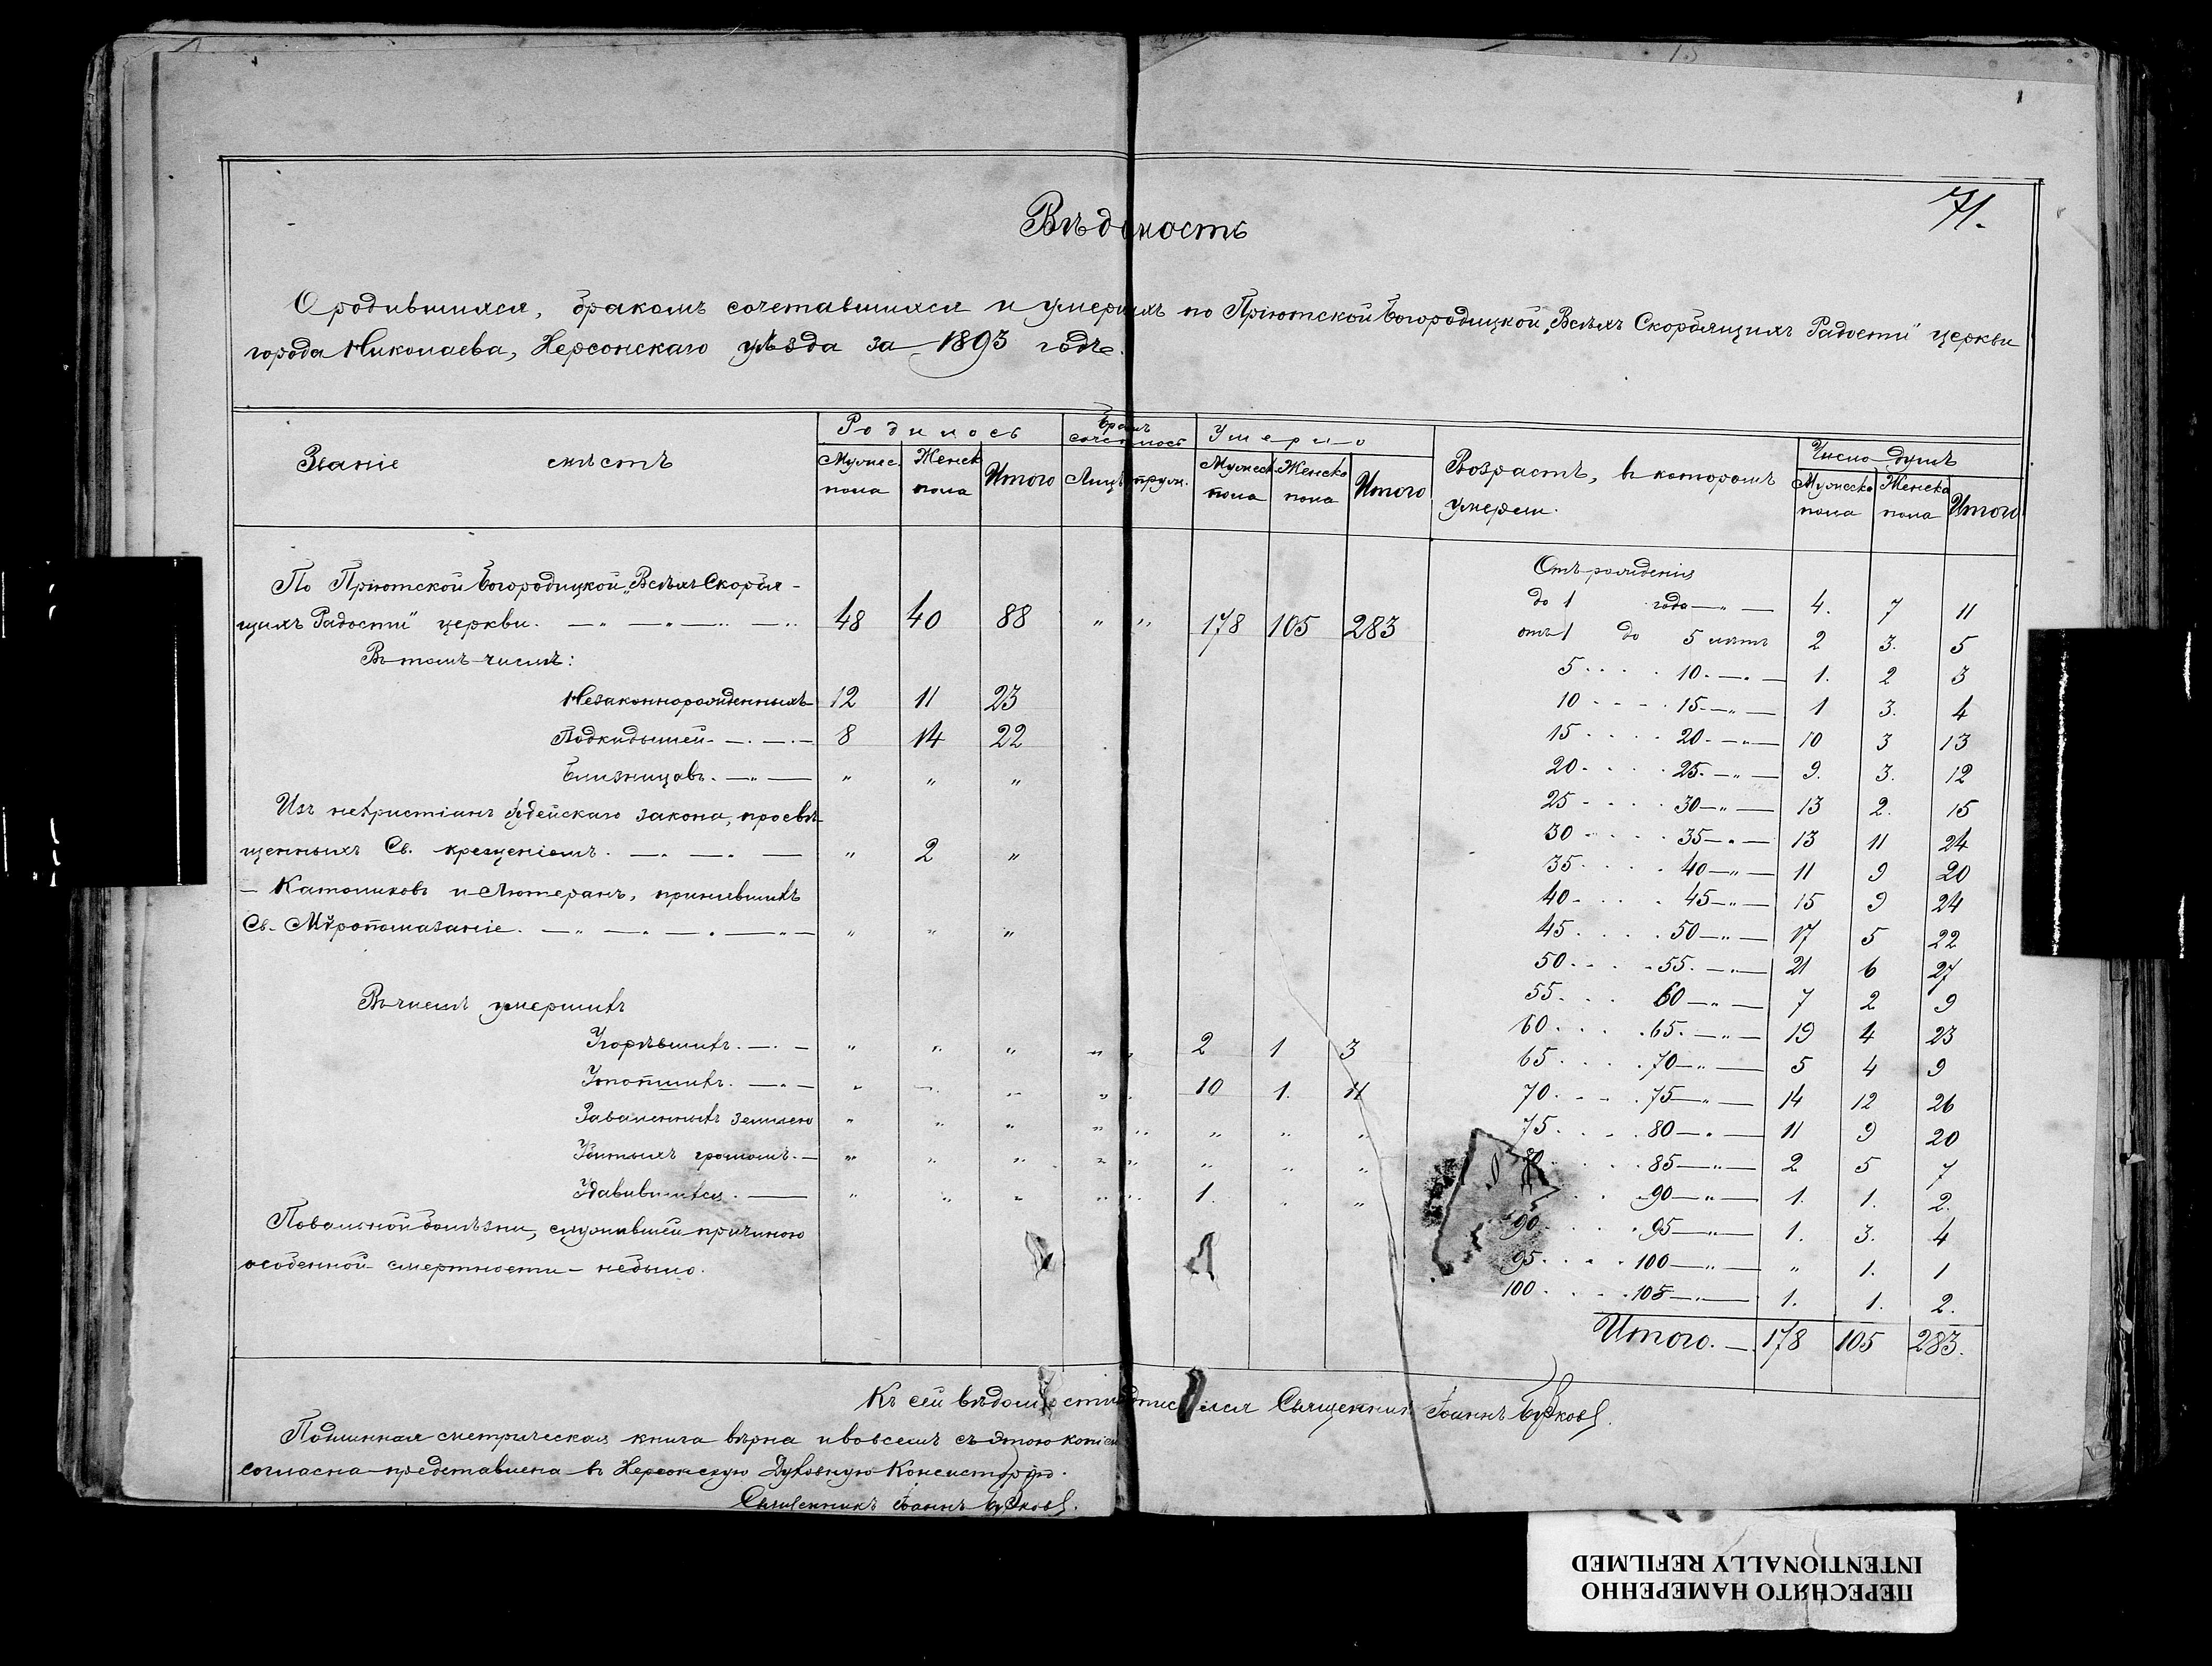 71.
Вѣдомость
О родившихся, бракомъ сочетавшихся и умершихъ по Пріютской Богородицкой „Всѣхъ Скорбящихъ Радости" церкви
города Николаева, Херсонскаго уѣзда за 1893 годъ.
Званіе мѣстъ
Родилось
Бракомъ сочеталось
Умерло
Возрастъ, въ которомъ умерли.
Число душъ
Мужес. пола Женск пола Итого Лицъ Мужеск пола Женска пола Итого Мужеска пола Женска пола Итого
По Пріютской Богородицкой „Всѣхъ Скорбя-
щихъ Радости" церкви. 48 40 88 „ „ 178 105 283
Въ томъ числѣ:
Незаконнорожденныхъ 12 11 23
Подкидышей 8 14 22
Близнецовъ „ „ „
Изъ нехристіанъ Іудейскаго закона, просвѣ-
щенныхъ Св. крещеніемъ. „ 2 „
— Католиковъ и Лютеранъ, принявшихъ
Св. Мѵропомазаніе. „ „ „
Въ числѣ умершихъ
Угорѣвшихъ. „ „ „ „ „ 2 1 3
Утопшихъ. „ „ „ „ „ 10 1. 11
Заваленныхъ землею „ „ „ „ „ „ „ „
Убитыхъ громомъ. „ „ „ „ „ „ „ „
Удавившихся. „ „ „ „ „ 1. „ „
Повальной болѣзни, служившей причиною
особенной смертности — небыло.
Отъ рожденія
до 1 года 4. 7 11
отъ 1 до 5 лѣтъ 2 3. 5
5 10 1. 2 3
10 15 1 3. 4
15 20 10 3 13
20 25 9. 3. 12
25 30 13 2. 15
30 35 13 11 24
35 40 11 9 20
40 45 15 9 24
45 50 17 5 22
50 55 21 6 27
55 60 7 2 9
60 65 19 4 23
65 70 5 4 9
70 75 14 12 26
75 80 11 9 20
80 85 2 5 7
90 1. 1. 2.
90 95 1. 3. 4
95 100 „ 1. 1
100 105 1. 1. 2.
Итого. 178 105 283.
Къ сей вѣдомости подписался Священникъ Іоаннъ
Подлинная метрическая книга вѣрна и во всемъ съ этою копіею
согласна представлена въ Херсонскую Духовную Консисторію.
Священникъ Іоаннъ
ПЕРЕСНЯТО НАМЕРЕННО
INTENTIONALLY REFILMED